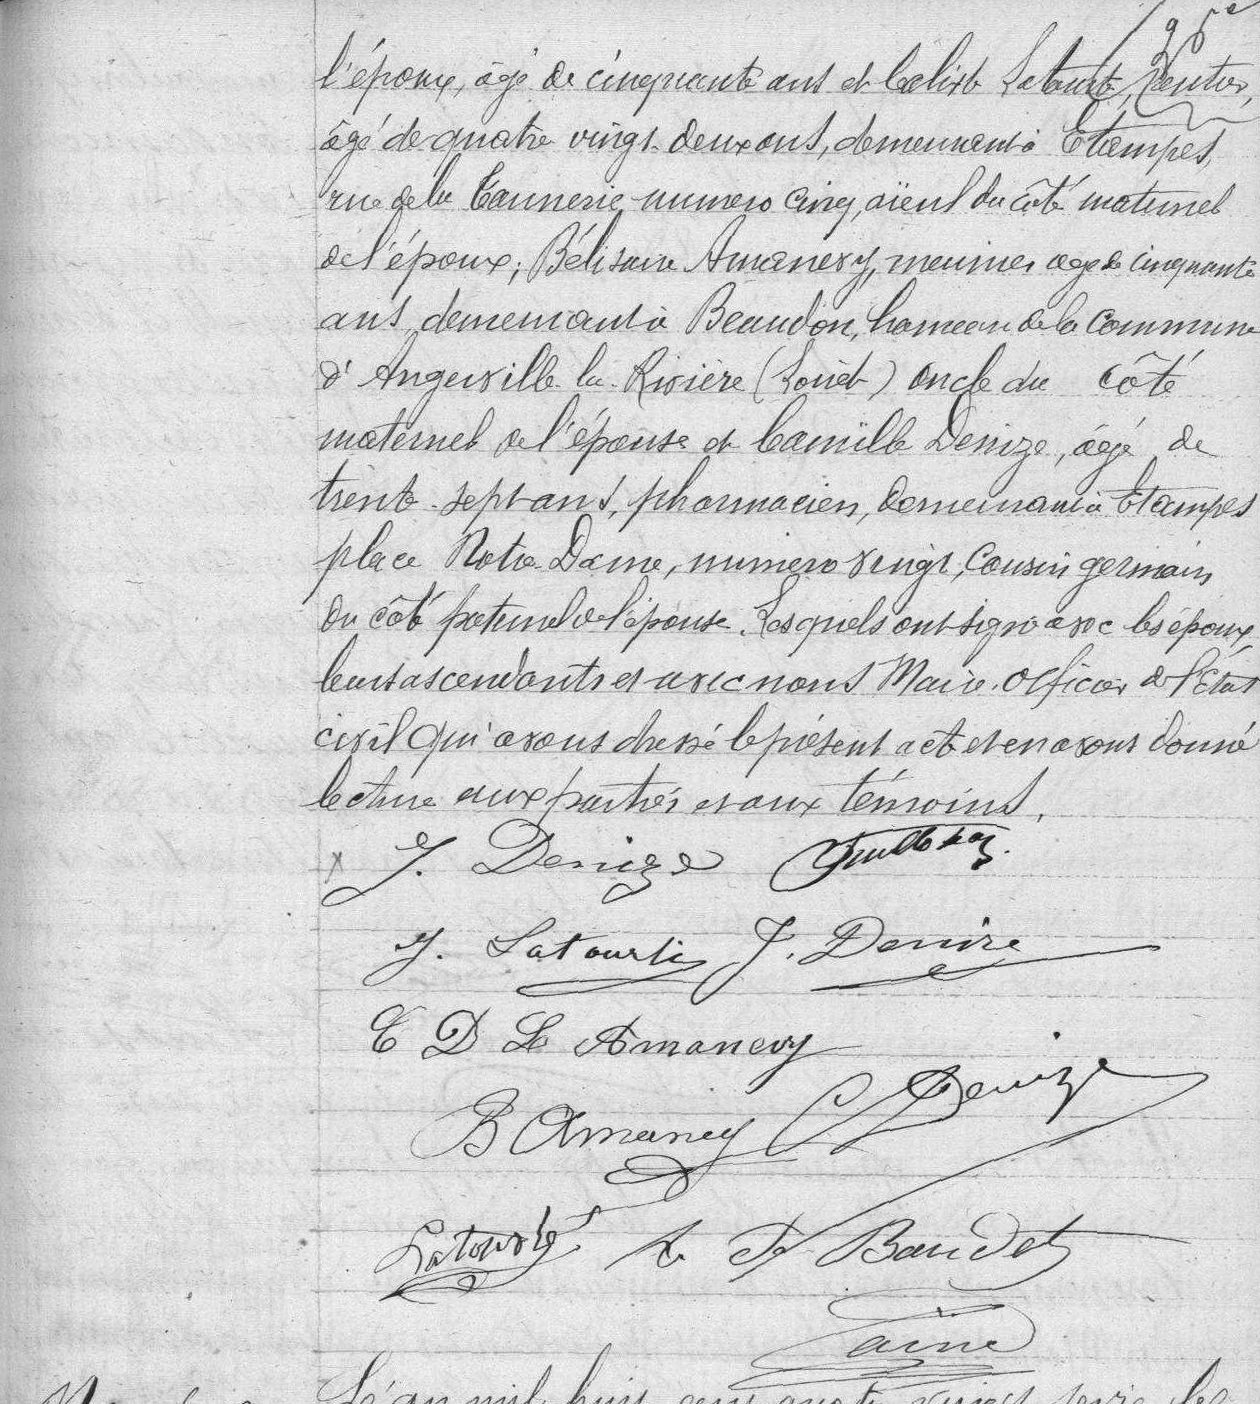 l'époux, âgé de cinquante ans et Calixte Latourte, Rentier,
âgé de quatre vingt deux ans, demeurant à Etampes,
rue de la Tannerie numero cinq, aïeul du côté maternel
de l'époux; Bélisaire Amanery, meunier âgé de cinquante
ans demeurant à Beaudon, hameau de la Commune
d'Angerville la Rivière (Loiret) oncle du côté
maternel de l'épouse et Camille Denize, âgé de
trente sept ans, pharmacien, demeurant à Etampes
place Notre Dame, numero vingt, Cousin germain
du côté paternel de l'épouse. Lesquels ont signé avec les époux
leurs ascendants et avec nous Maire Officier de l'Etat
civil qui avons dressé le présent acte et en avons donné
lecture aux parties et aux témoins.
J. Denize
J. Latourte J. Denize
C D L Amanery
B Amanery C Denize
Latourte Baudet
Le an mil huit cent quatre vingt seize le